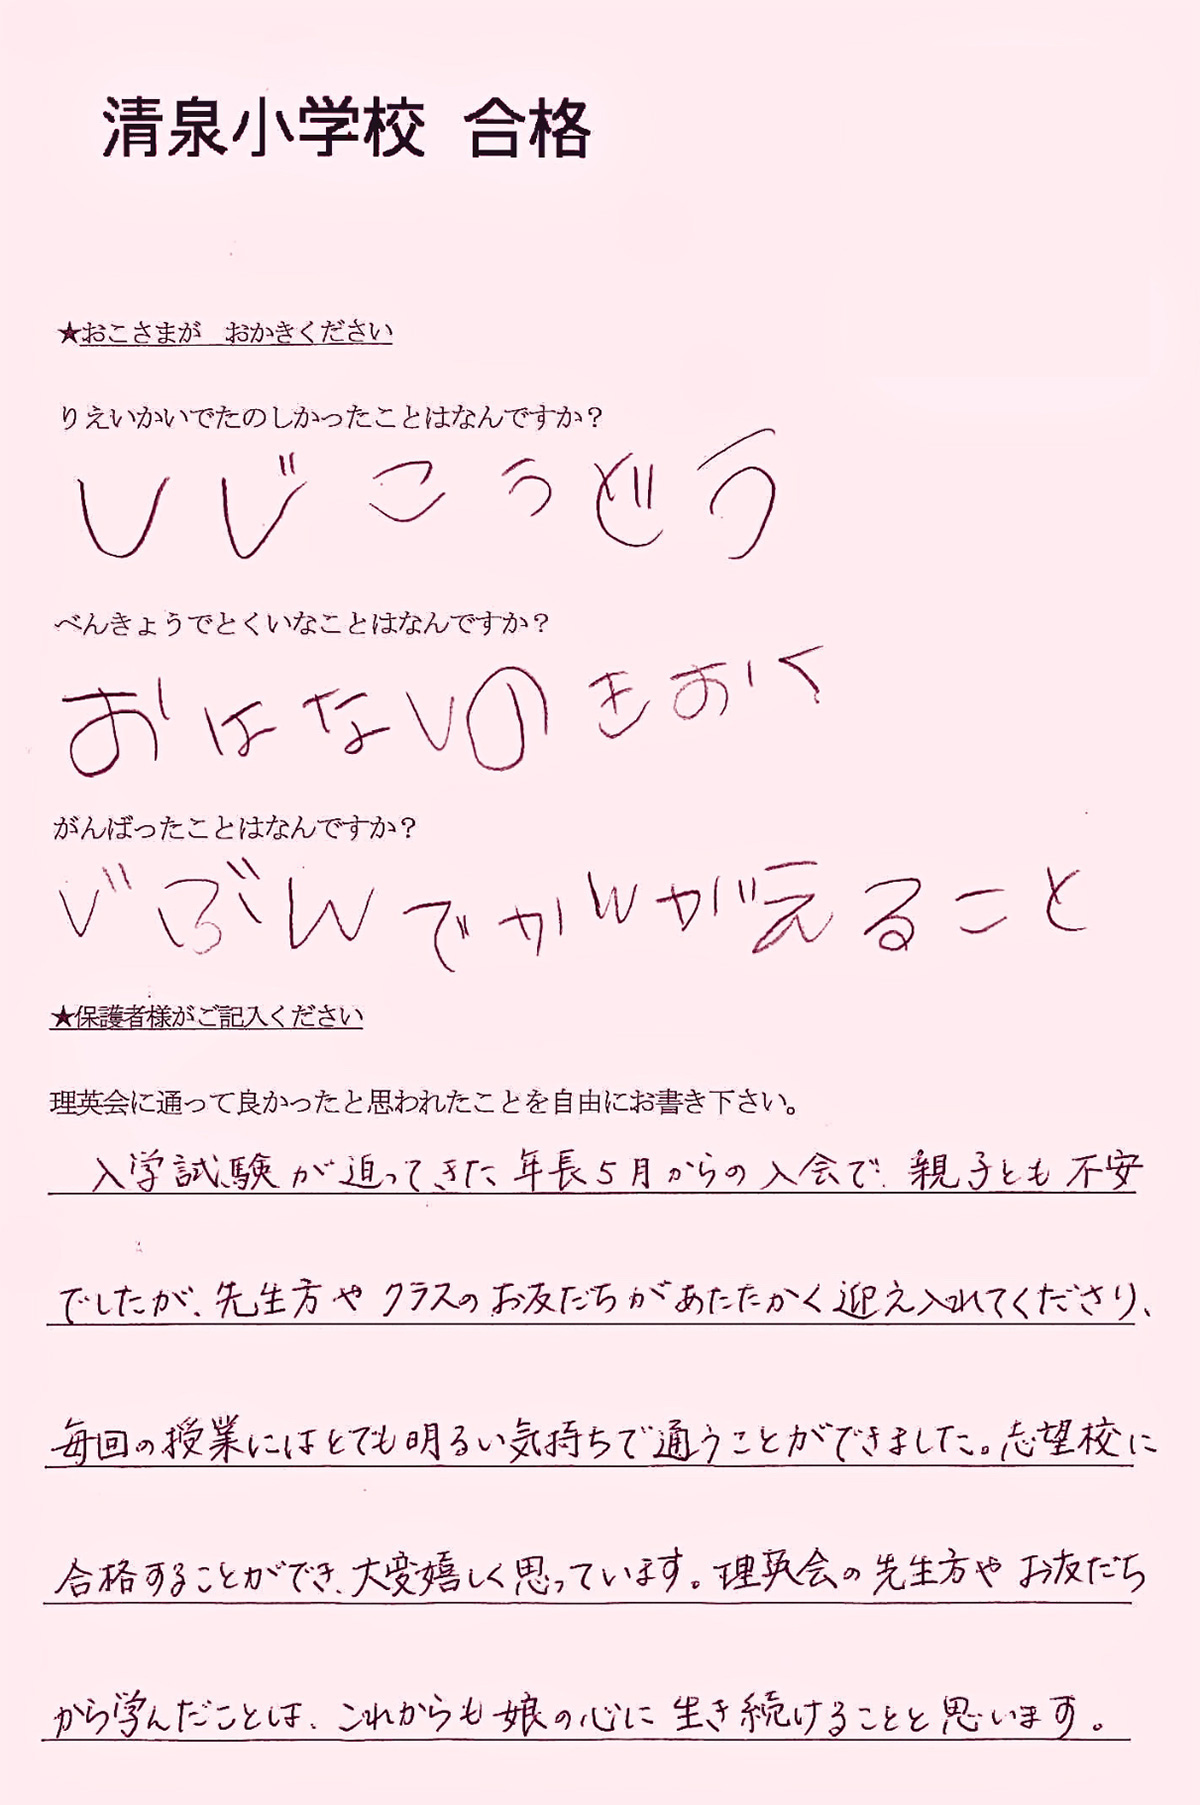 清泉小学校 合格
★おこさまが　おかきください
りえいかいでたのしかったことはなんですか？
しじこうどう
べんきょうでとくいなことはなんですか？
おはなしのきおく
がんばったことはなんですか？
じぶんでかんがえること
★保護者様がご記入ください
理英会に通って良かったと思われたことを自由にお書き下さい。
入学試験が迫ってきた年長5月からの入会で親子とも不安
でしたが、先生方やクラスのお友だちがあたたかく迎え入れてくださり、
毎回の授業にはとても明るい気持ちで通うことができました。志望校に
合格することができ、大変嬉しく思っています。理英会の先生方やお友だち
から学んだことは、これからも娘の心に生き続けることと思います。